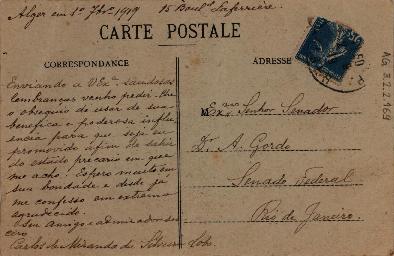 Alger em 1º Fbrº 1919   15 Boulᵈ Laferrière.
CARTE POSTALE
CORRESPONDANCE
ADRESSE
Enviando a V. Exª saudosas
lembranças venho pedir-lhe
o obsequio de usar de sua
benefica e poderosa influ-
encia para que seja eu
promovido afim de sahir
do estado precario em que
me acho. Espero muito em
sua bondade e desde já
me confesso em extremo
agradecido.
Seu amigo e admirador
Carlos de Miranda da
M
Exmo Senhor Senador
Dr. A. Gordo
Senado Federal
Rio de Janeiro.
AG 3.2.2.169